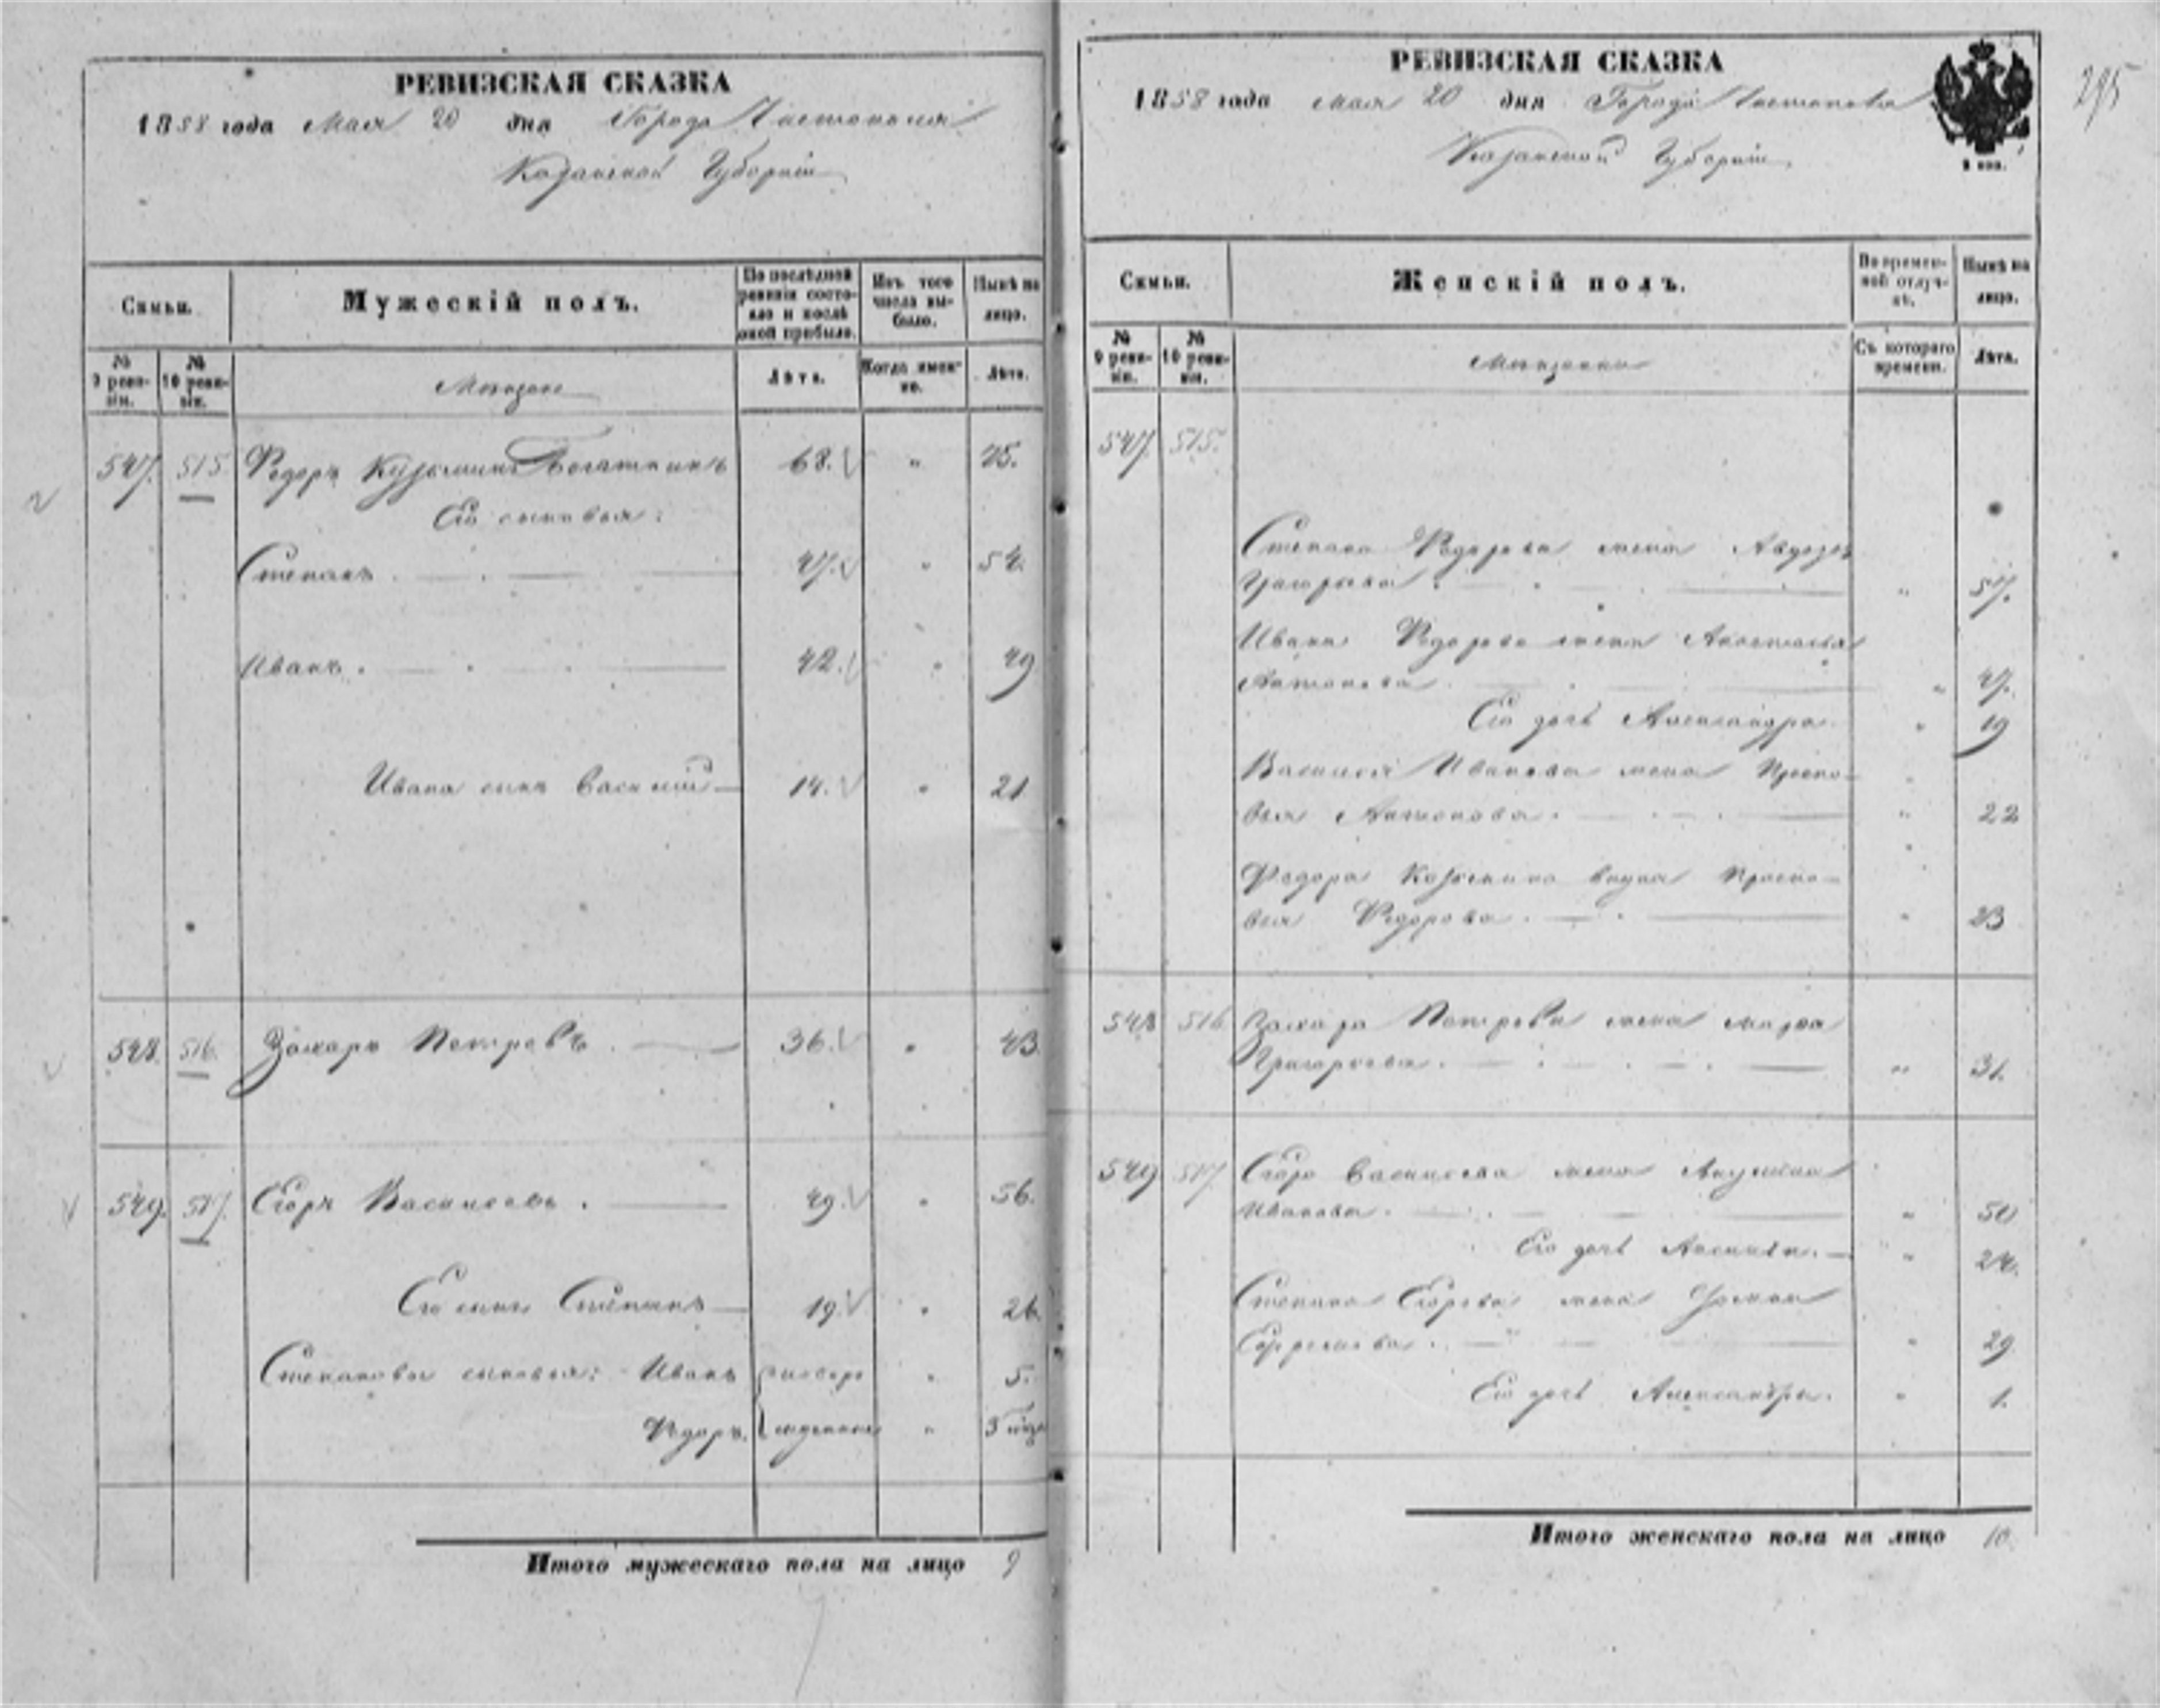 РЕВИЗСКАЯ СКАЗКА
1858 года Мая 20 дня Города Чистополя
Казанской Губерніи
Семьи.
Мужескій полъ.
По послѣдней ревизіи состояло и послѣ оной прибыло.
Изъ того числа выбыло.
Нынѣ на лицо.
№ 9 ревизіи.
№ 10 ревизіи.
Мѣщане
Лѣта.
Когда именно.
Лѣта.
547. 515 Федоръ Кузьминъ Богаткинъ 68. " 75.
Его сыновья:
Степанъ 47. " 54.
Иванъ. 42. " 49
Ивана сынъ Василій 14. " 21
548. 516. Захаръ Петровъ 36. " 43.
549. 517. Егоръ Васильевъ. 49. " 56.
Его сынъ Степанъ 19. " 26.
Степановы сыновья: Иванъ " 5.
Федоръ. "
Итого мужескаго пола на лицо 9
295
РЕВИЗСКАЯ СКАЗКА
1858 года мая 20 дня Города Чистополя
Казанской Губерніи.
Семьи.
Женскій полъ.
Во временной отлучкѣ.
Нынѣ на лицо.
№ 9 ревизіи.
№ 10 ревизіи.
Мѣщанки
Съ котораго времени.
Лѣта.
547. 515.
Степана Федорова жена Авдотья
Григорьева. " 57.
Ивана Федорова жена Анастасья
Антонова. " 47.
Его дочь Александра. " 19
Василья Иванова жена Праско-
вья Антонова. " 22
Федора Козьмина внука Праско-
вья Федорова. " 23
548 516 Захара Петрова жена Марья
Григорьева. " 31.
549 517. Егора Васильева жена Акулина
Иванова. " 50
Его дочь " 24.
Степана Егорова жена
" 29
Его дочь Александра. " 1.
Итого женскаго пола на лицо 10.